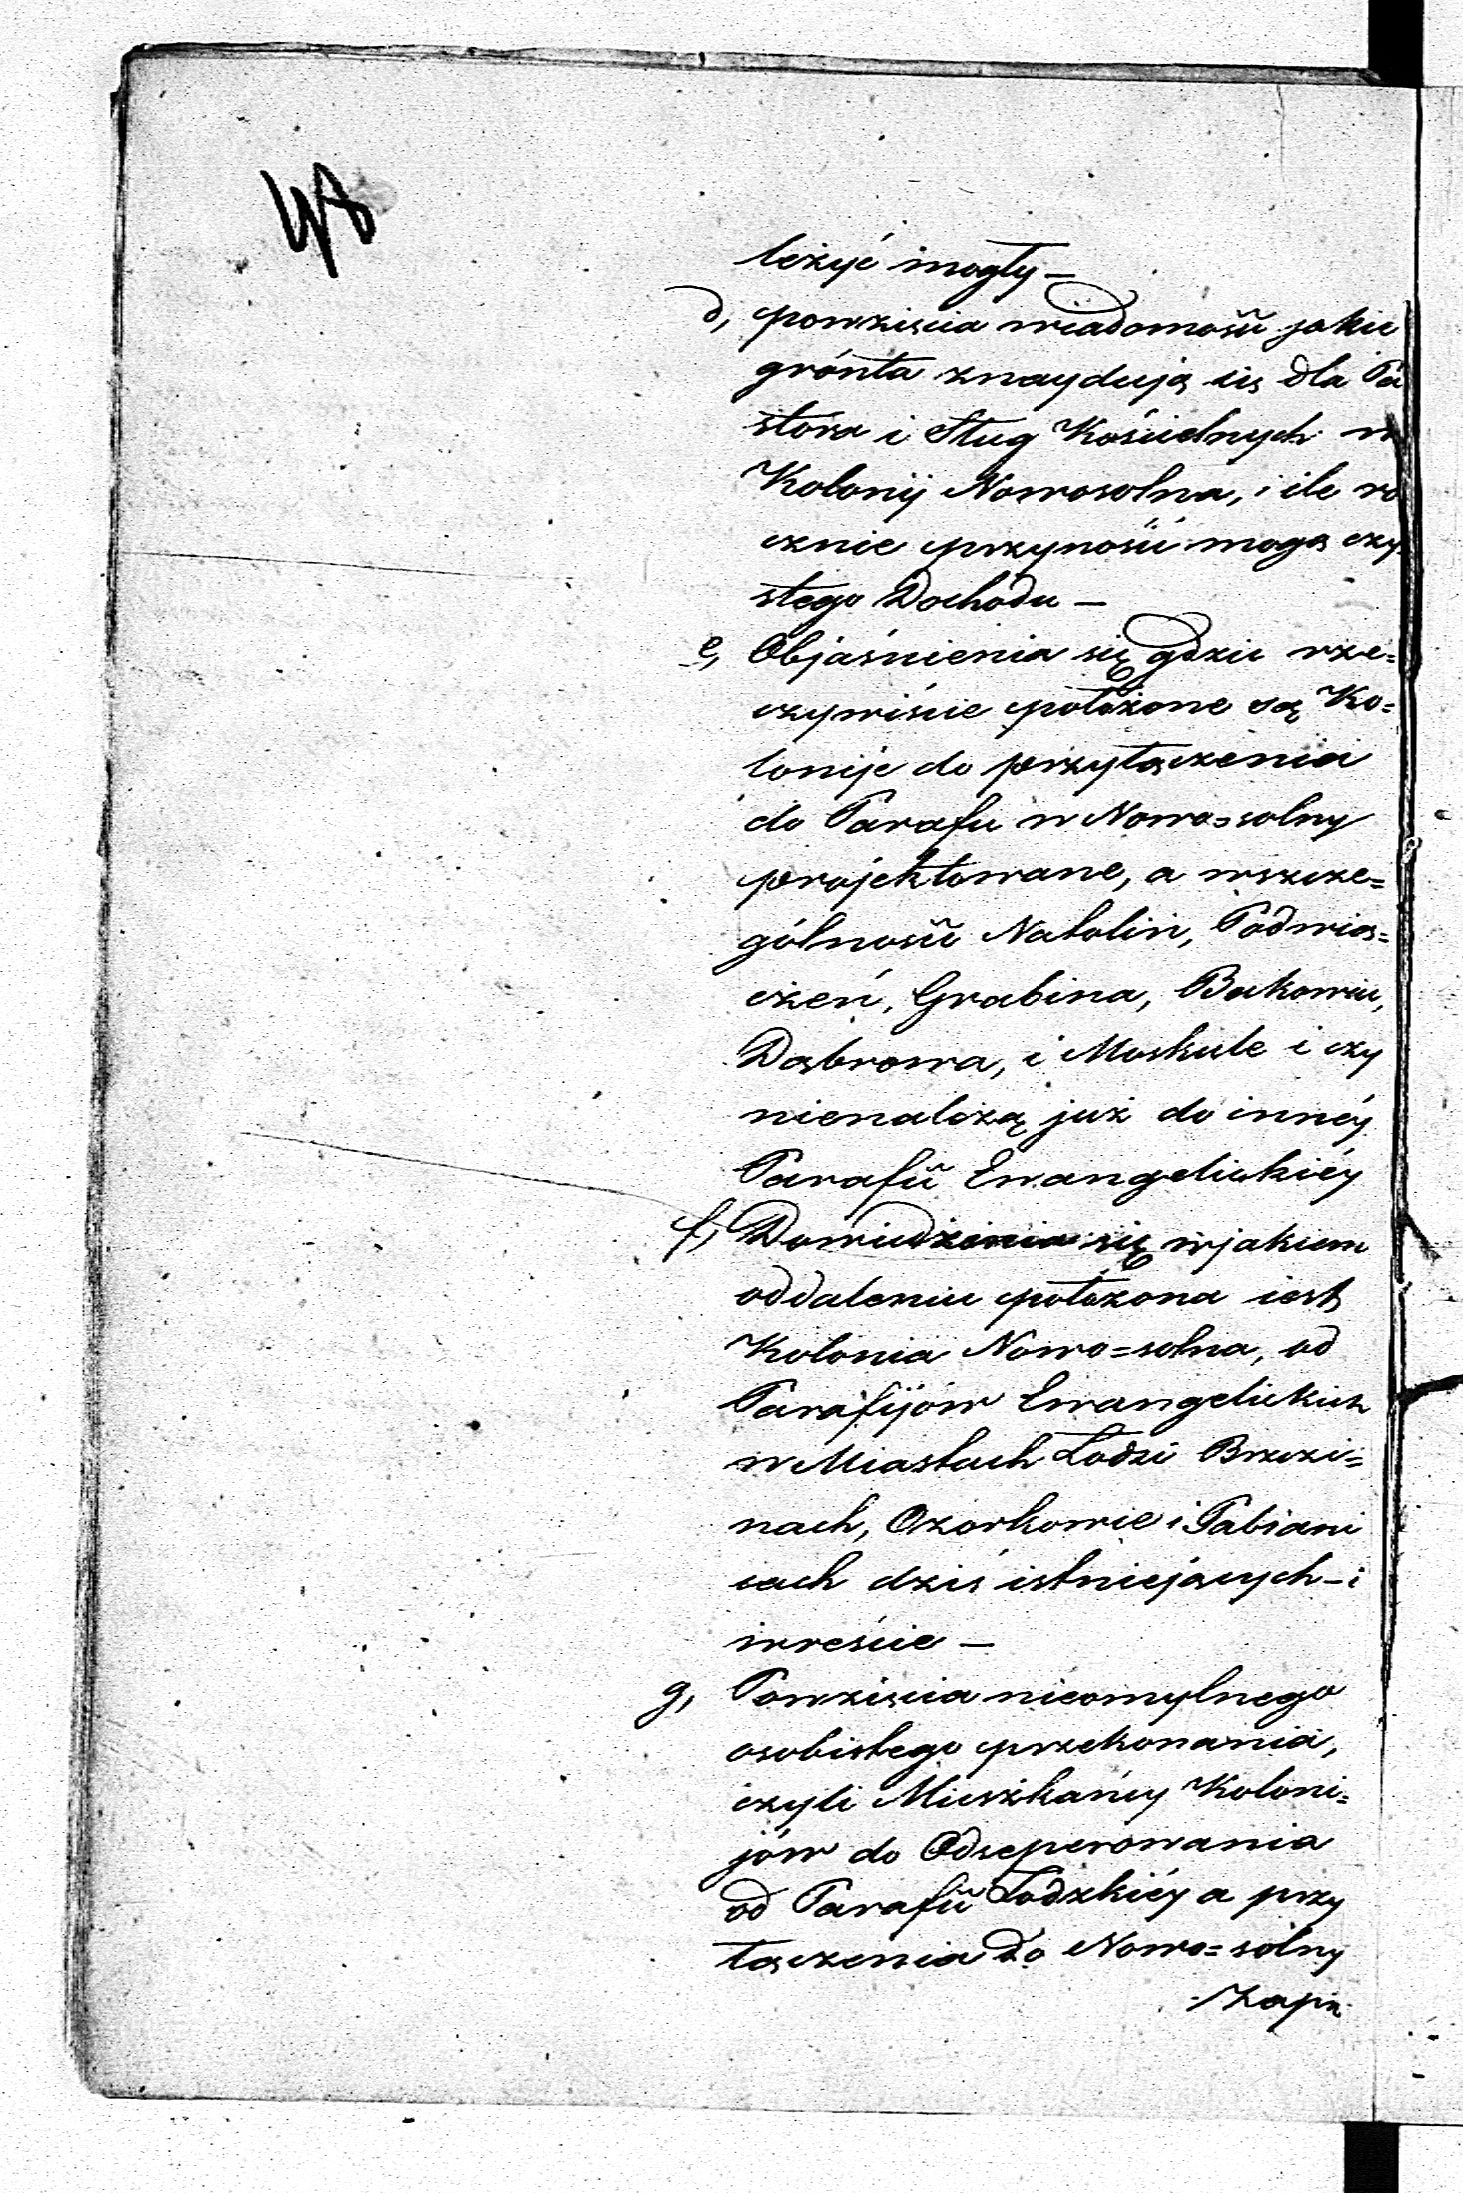 48
leżyć mogły —
d, powzięcia wiadomości jakie
grónta znayduią się dla Pa
stora i Sług Kościelnych w
Kolonij Nowosolna, i ile ro
cznie przynosić mogą czy
stego Dochodu —
e, Objaśnienia się gdzie rze=
czywiście położone są Ko=
lonije do przyłączenia
do Parafii w Nowo=solny
projektowane, a wszcze=
gólności Natolin, Podwiąs=
czeń, Grabina, Bukowiec,
Dąbrowa, i Moskule i czy
nienależą już do innéy
Parafii Ewangelickiéy
f, Dowiedzenia się wjakiem
oddaleniu położona iest
Kolonia Nowo=solna, od
Parafijów Ewangelickich
w Miastach Łodzi Brzezi=
nach, Ozorkowie i Pabiani
cach dziś istniejących – i
wreście —
g, Powzięcia nieomylnego
osobistego przekonania,
czyli Mieszkańcy Koloni=
jów do Odseperowania
od Parafii Łodzkiéy a przy
łączenia do Nowo=solny